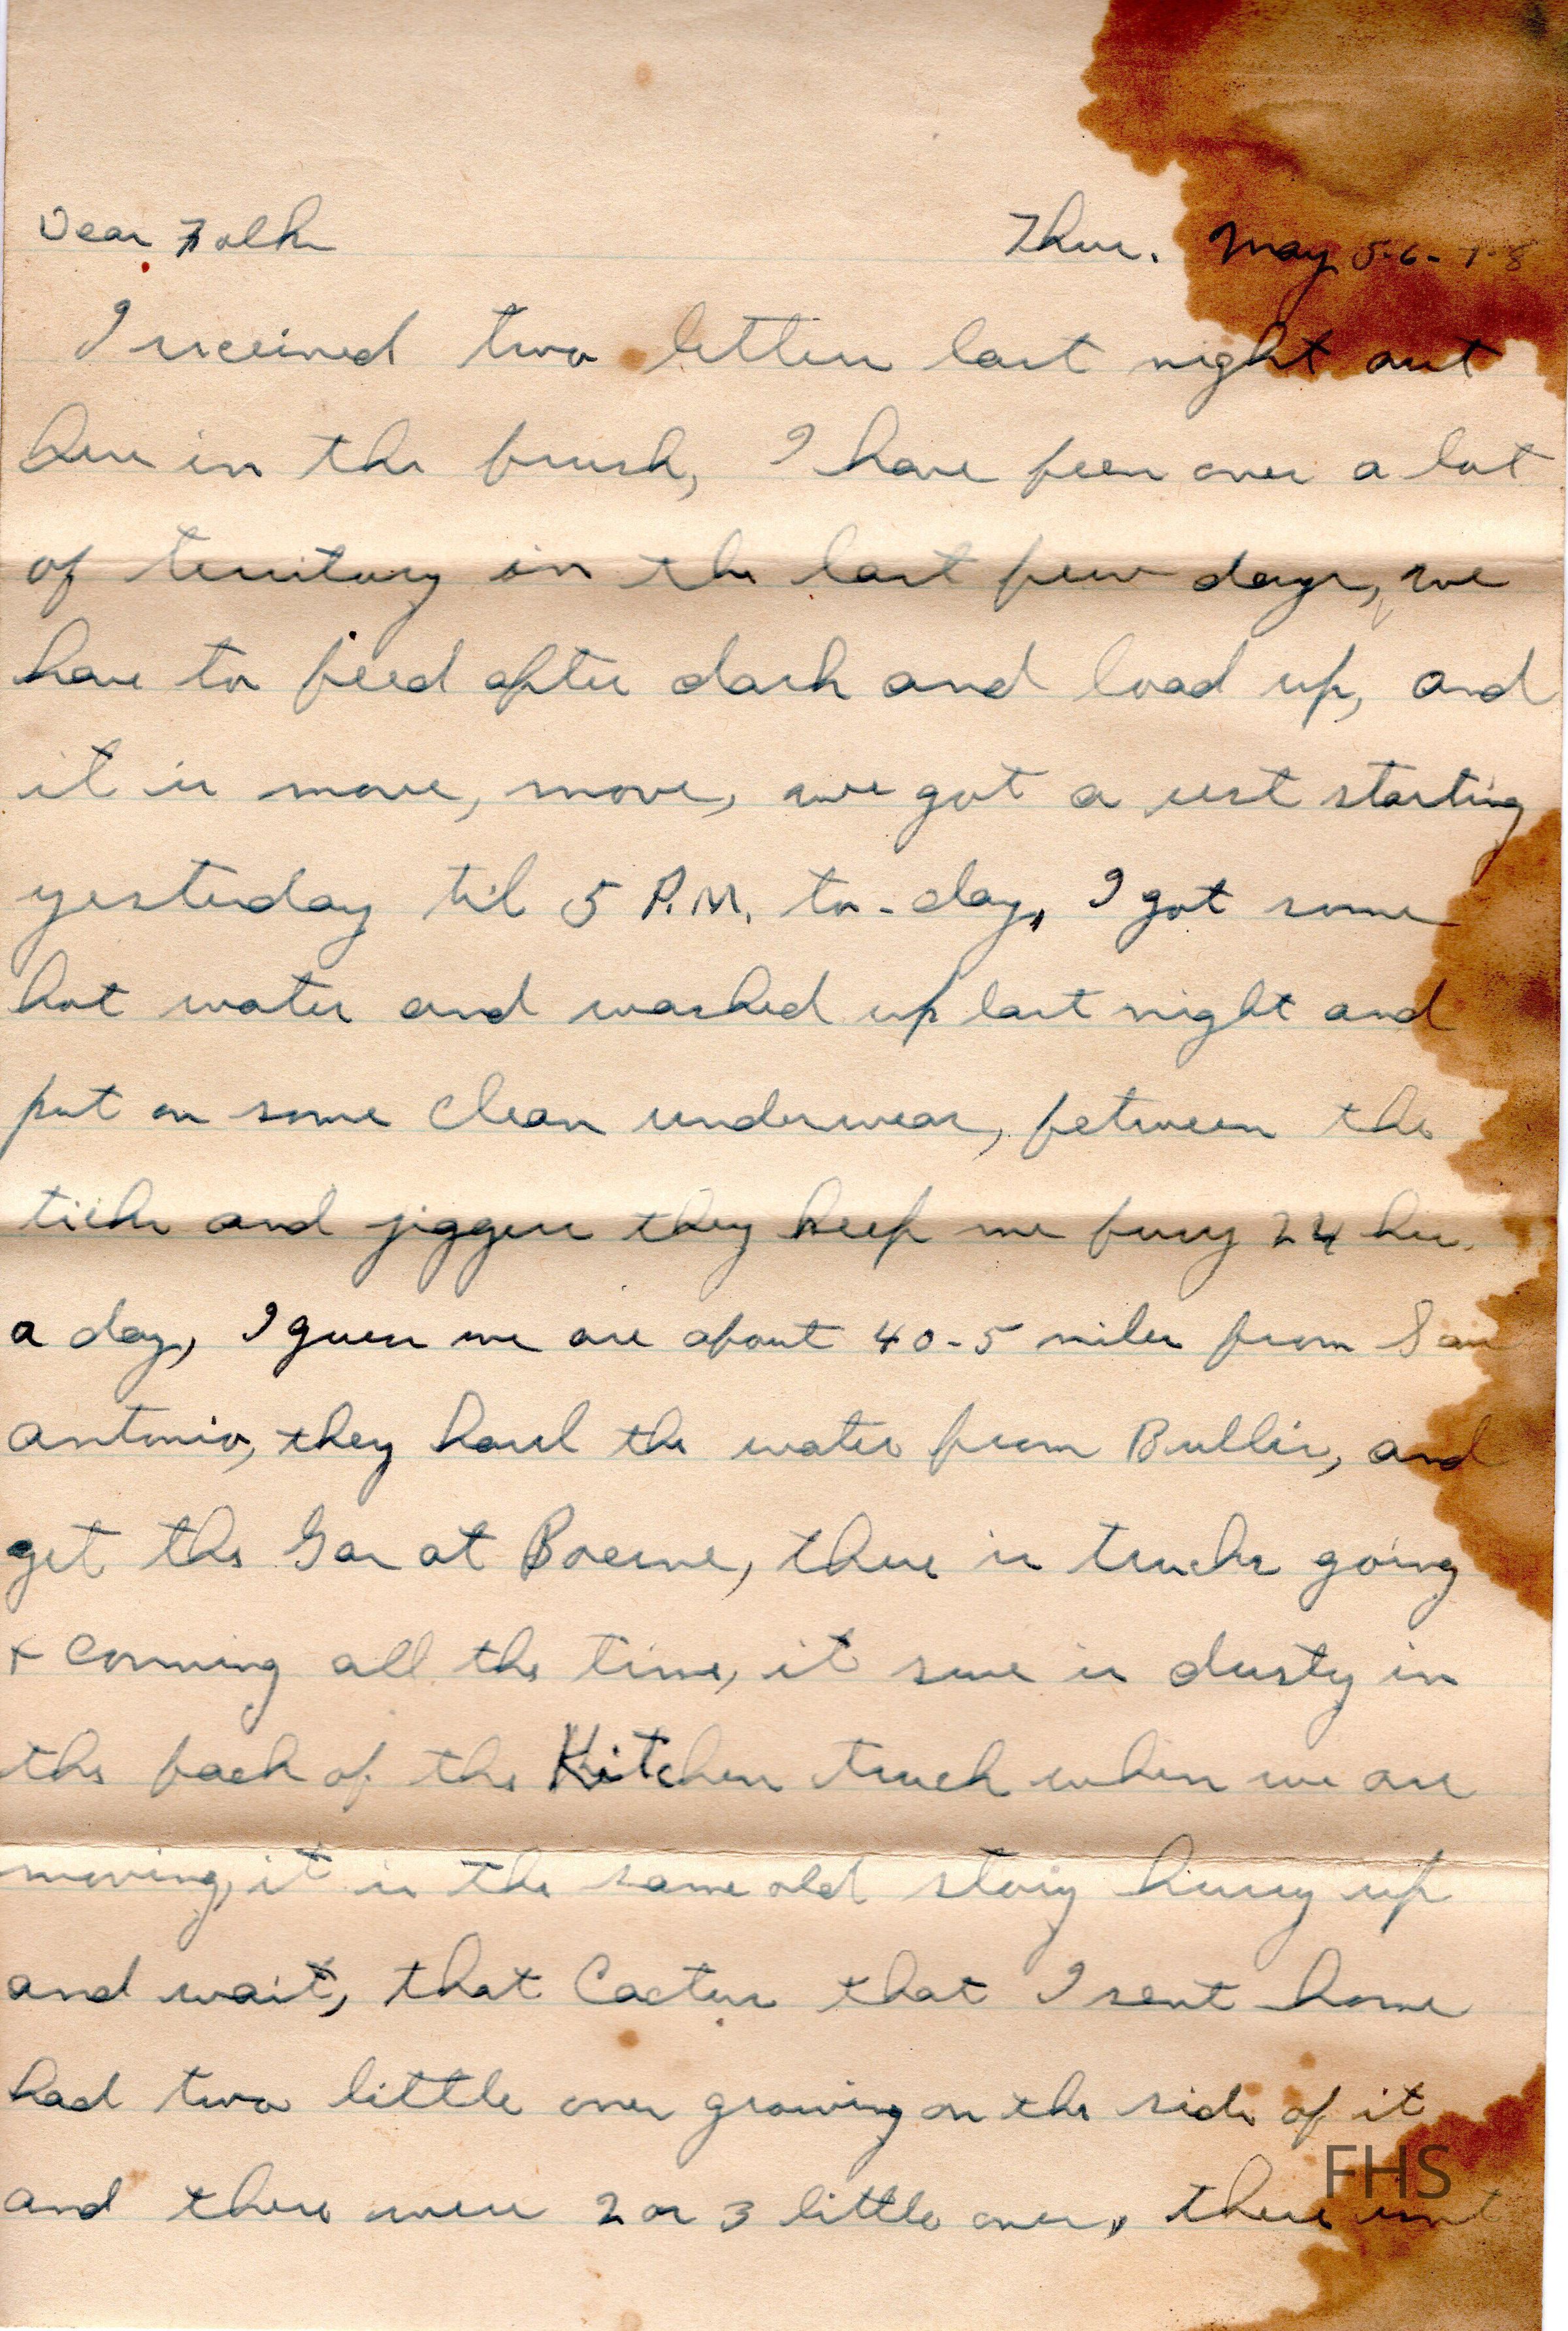 Dear Folks Thur. May 5-6-7-8
I received two letters last night out
here in the brush, I have been over a lot
of territory in the last few days, we
have to feed after dark and load up, and
it is move, move, we got a rest starting
yesterday til 5 P.M. to-day, I got some
hot water and washed up last night and
put on some clean underwear, between the
ticks and jiggers they keep me busy 24 hrs.
a day, I guess we are about 40-5 miles from San
Antonio, they haul the water from Bullis, and
get the Gas at Boerne, there is trucks going
+ comming all the time, it sure is dusty in
the back of the Kitchen truck when we are
moving, it is the same old story hurry up
and wait, that Cactus that I sent home
had two little ones growing on the side of it
and there were 2 or 3 little ones, there isnt
FHS